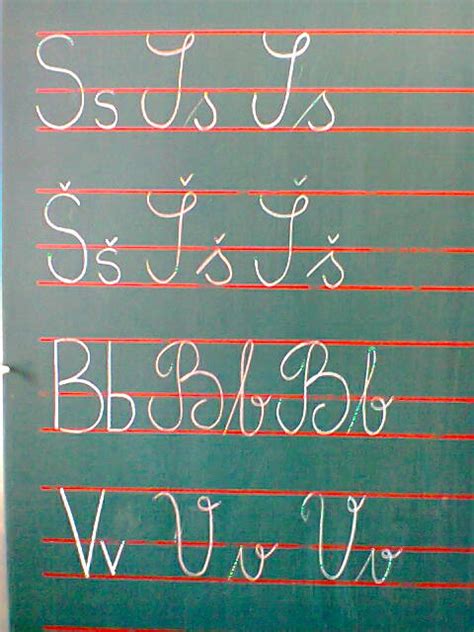 S s S s S s
Š š Š š Š š
B b B b B b
V v V v V v